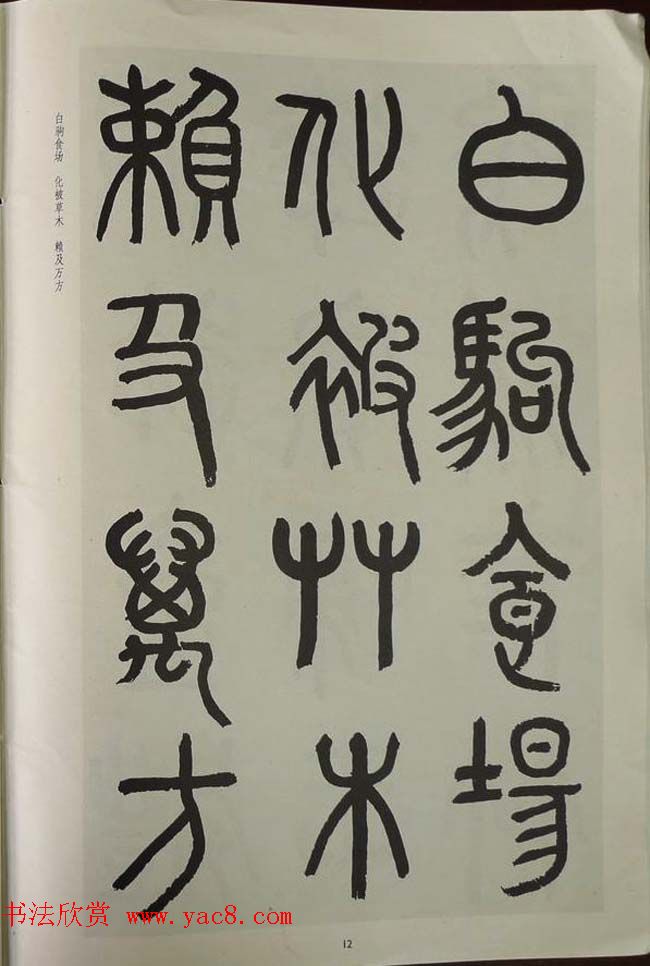 白駒食場
化被艸木
賴及萬方
白驹食场　化被草木　赖及万方
书法欣赏 www.yac8.com
12